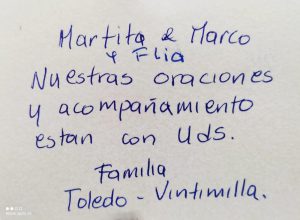 Martita & Marco
y Flia
Nuestras oraciones
y acompañamiento
estan con Uds.
Familia
Toledo - Vintimilla.